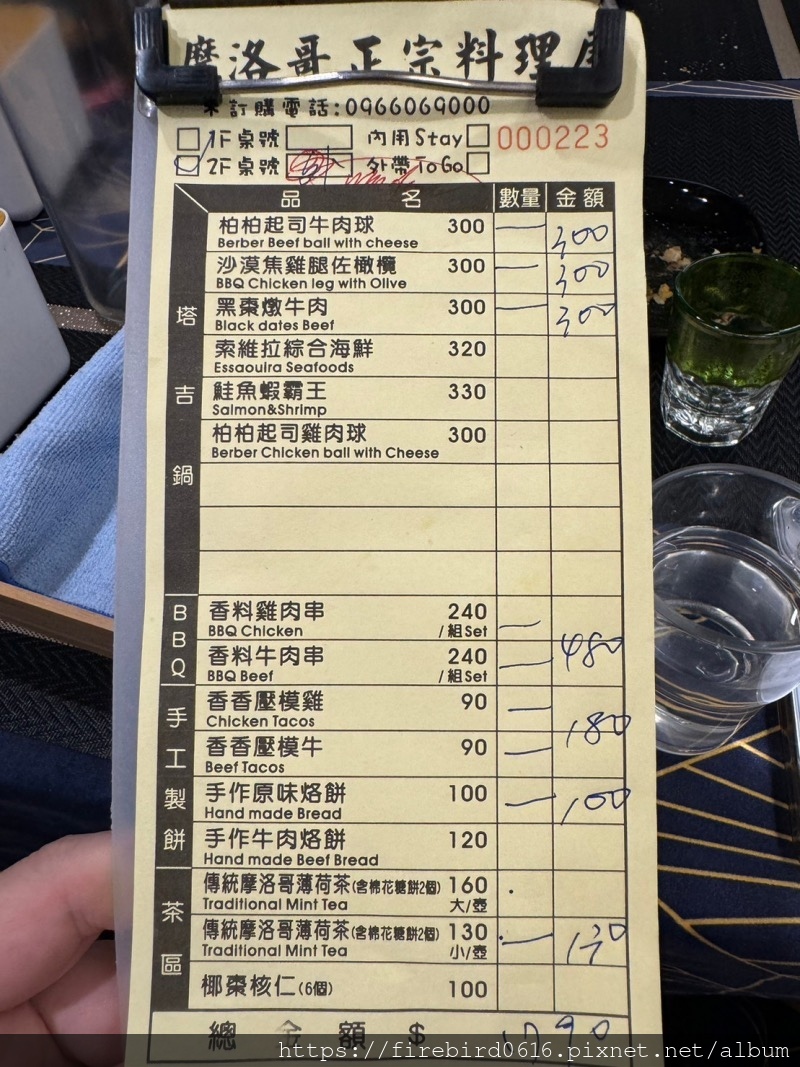 摩洛哥正宗料理
訂購電話:0966069000
1F桌號 內用Stay 000223
2F桌號 外帶ToGo
品名 數量 金額
塔吉鍋
柏柏起司牛肉球 300 一 300
Berber Beef ball with cheese
沙漠焦雞腿佐橄欖 300 一 300
BBQ Chicken leg with Olive
黑棗燉牛肉 300 一 300
Black dates Beef
索維拉綜合海鮮 320
Essaouira Seafoods
鮭魚蝦霸王 330
Salmon&Shrimp
柏柏起司雞肉球 300
Berber Chicken ball with Cheese
BBQ
香料雞肉串 240 一
BBQ Chicken /組Set
480
香料牛肉串 240 一
BBQ Beef /組Set
手工製餅
香香壓模雞 90 一
Chicken Tacos
180
香香壓模牛 90 一
Beef Tacos
手作原味烙餅 100 一 100
Hand made Bread
手作牛肉烙餅 120
Hand made Beef Bread
茶區
傳統摩洛哥薄荷茶(含棉花糖餅2個) 160
Traditional Mint Tea 大/壺
傳統摩洛哥薄荷茶(含棉花糖餅2個) 130 一 130
Traditional Mint Tea 小/壺
椰棗核仁(6個) 100
總金額 $ 1790
https://firebird0616.pixnet.net/album